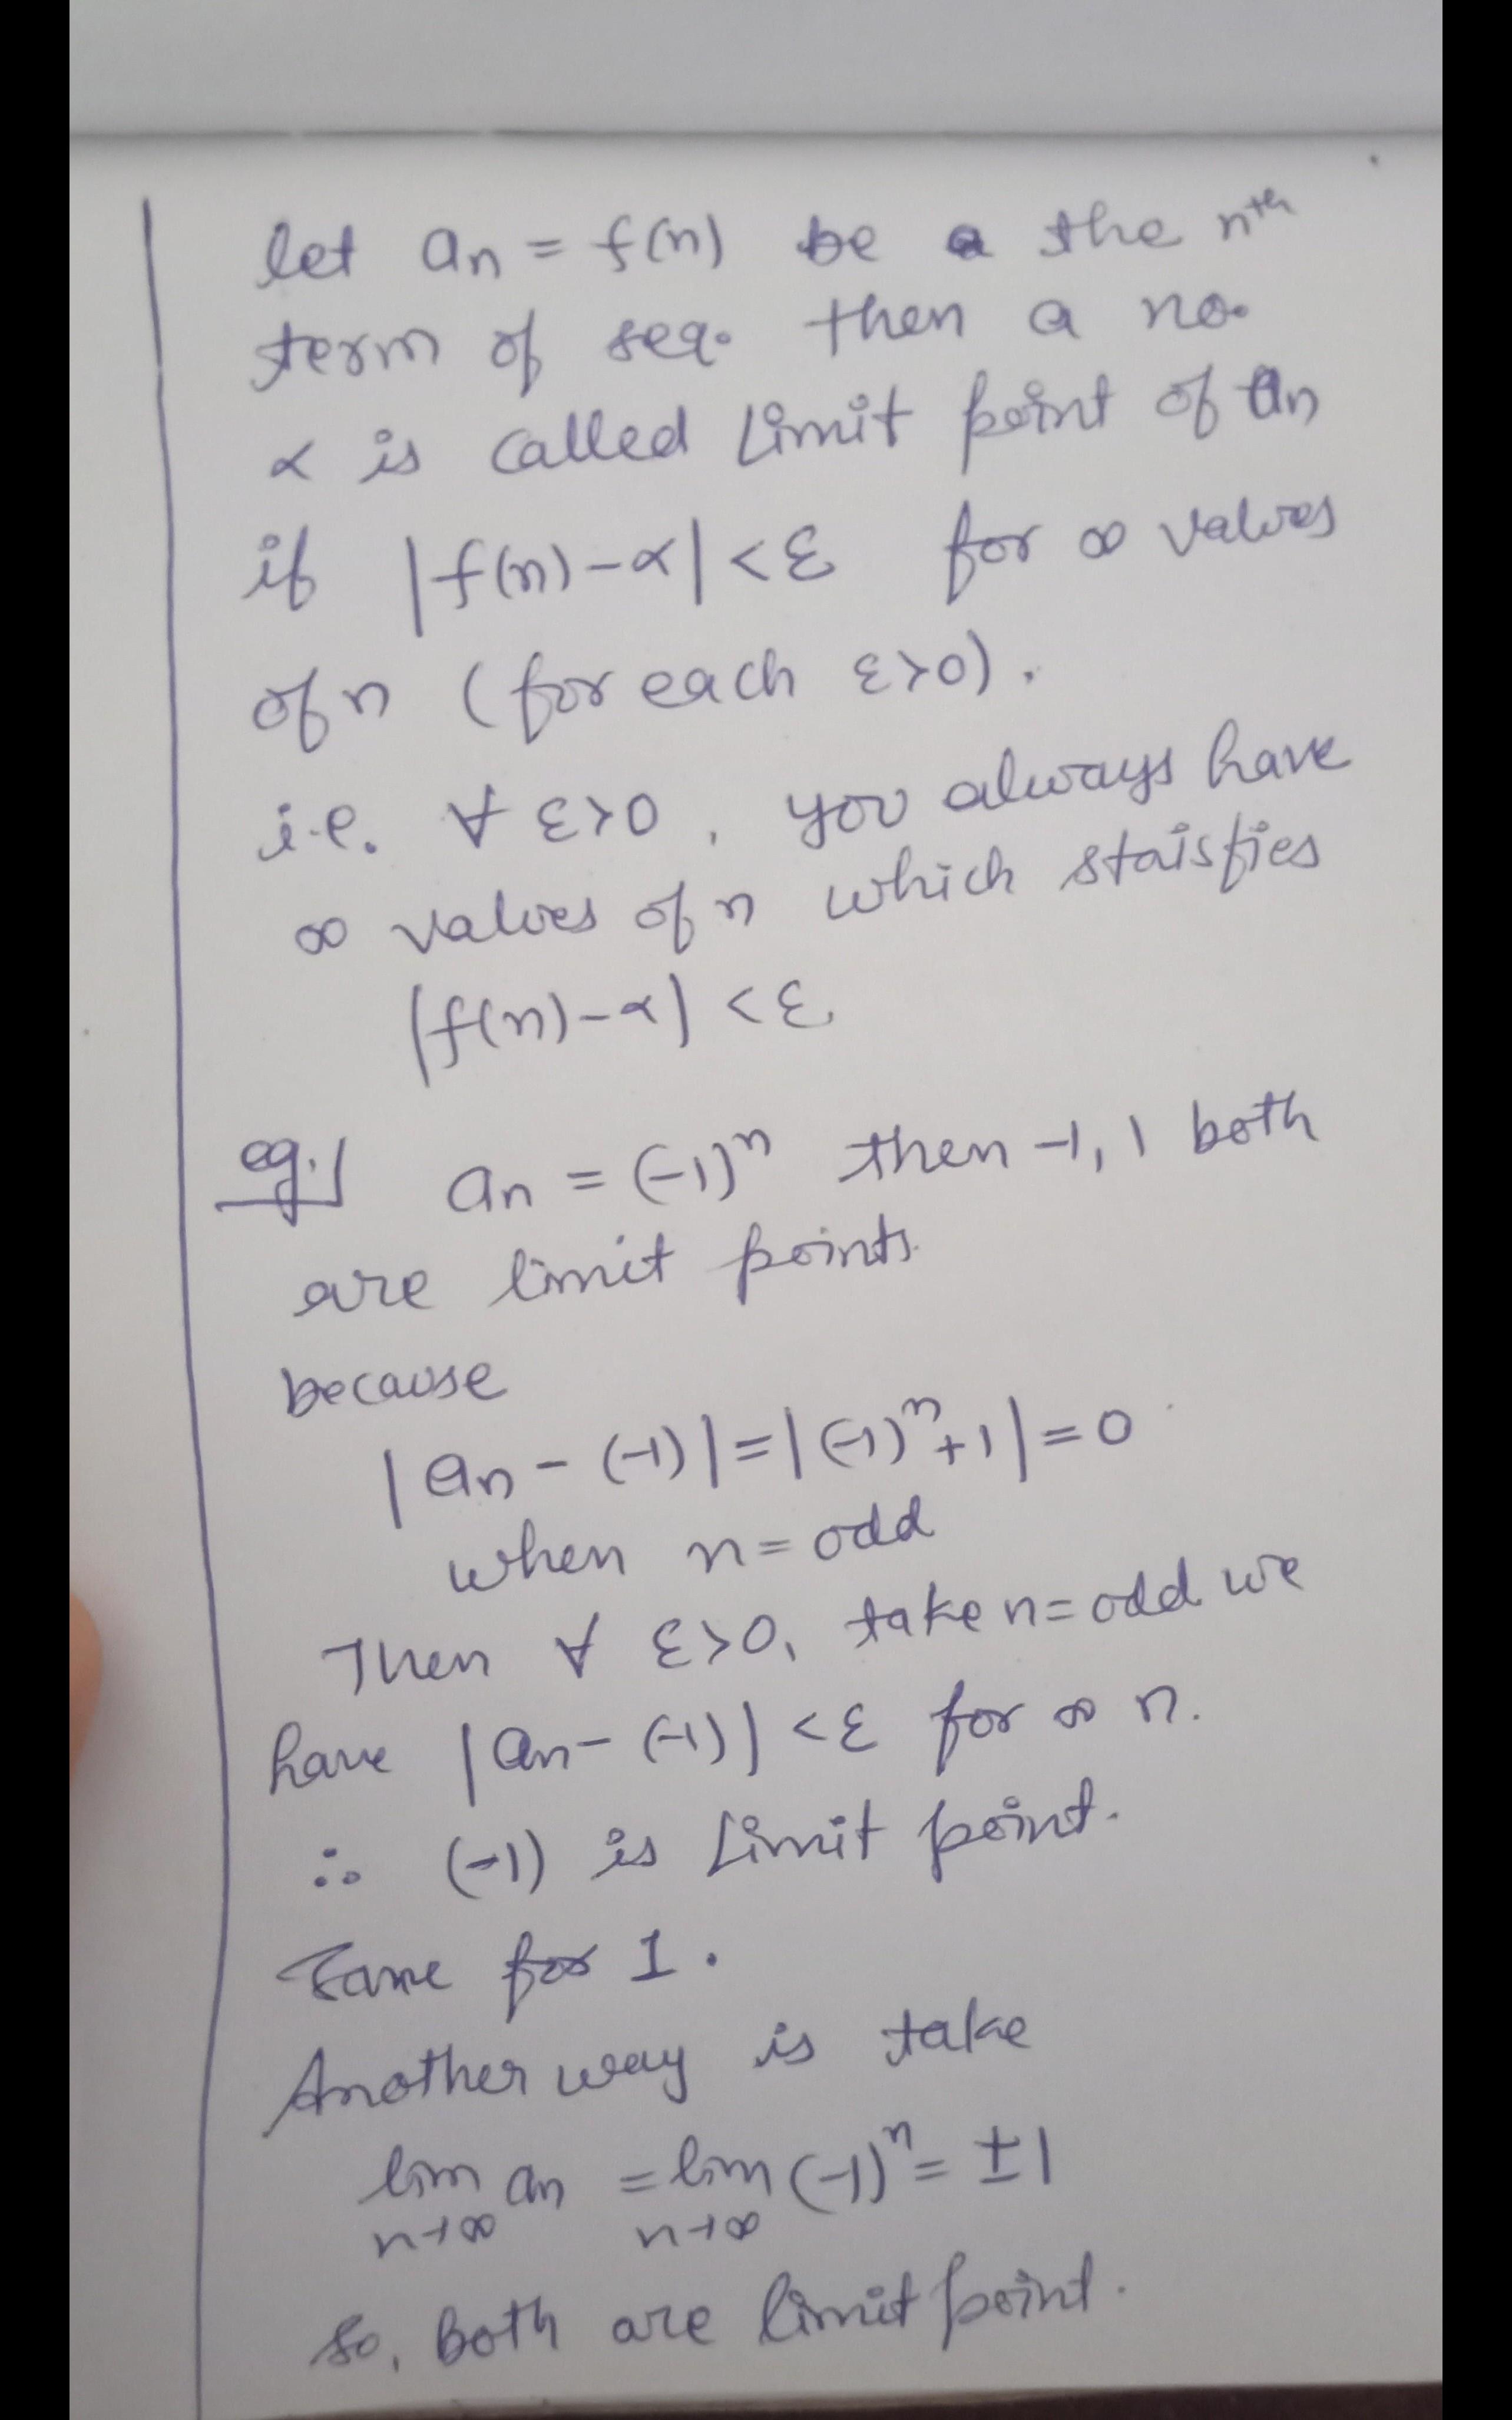 let an = f(n) be a the nth
term of seq. then a no.
α is called Limit point of an
if |f(n)-α| <ε for ∞ values
of n (for each ε>0).
i.e. ∀ ε>0, you always have
∞ values of n which staisfies
|f(n)-α| <ε
eg. an = (-1)^n then -1, 1 both
are limit points.
because
|an - (-1)| = |(-1)^n + 1| = 0
when n = odd
Then ∀ ε>0, take n = odd we
have |an - (-1)| <ε for ∞ n.
∴ (-1) is Limit point.
Same for 1.
Another way is take
lim an = lim (-1)^n = ±1
n→∞ n→∞
So, both are limit point.